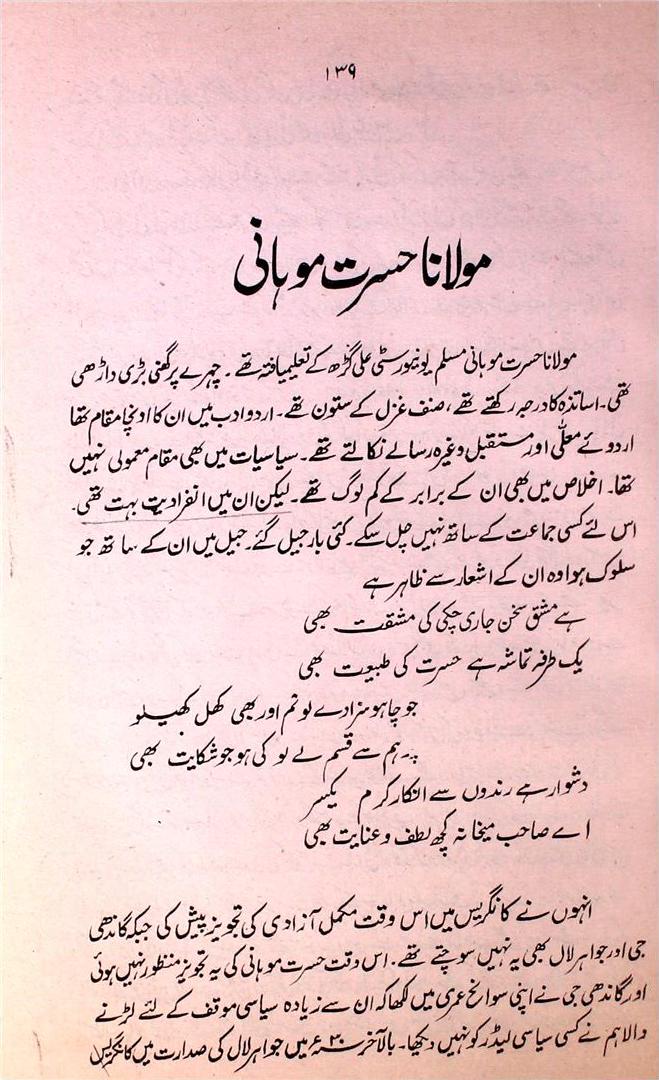 ۱۳۹
مولانا حسرت موہانی
مولانا حسرت موہانی مسلم یونیورسٹی علی گڑھ کے تعلیمیافتہ تھے۔ چہرے پر گھنی بڑی داڑھی
تھی۔ اساتذہ کا درجہ رکھتے تھے، صنف غزل کے ستون تھے۔ اردو ادب میں ان کا اونچا مقام تھا
اردوئے معلّٰی اور مستقبل وغیرہ رسالے نکالتے تھے۔ سیاسیات میں بھی مقام معمولی نہیں
تھا۔ اخلاص میں بھی ان کے برابر کے کم لوگ تھے۔ لیکن ان میں انفرادیت بہت تھی۔
اس لئے کسی جماعت کے ساتھ نہیں چل سکے۔ کئی بار جیل گئے۔ جیل میں ان کے ساتھ جو
سلوک ہوا وہ ان کے اشعار سے ظاہر ہے
ہے مشق سخن جاری چکی کی مشقت بھی
یک طرفہ تماشہ ہے حسرت کی طبیعت بھی
جو چاہو سزا دے لو تم اور بھی کھل کھیلو
پہ ہم سے قسم لے لو کی ہو جو شکایت بھی
دشوار ہے رندوں سے انکار کرم یکسر
اے صاحب میخانہ کچھ لطف و عنایت بھی
انہوں نے کانگریس میں اس وقت مکمل آزادی کی تجویز پیش کی جبکہ گاندھی
جی اور جواہر لال بھی یہ نہیں سوچتے تھے۔ اس وقت حسرت موہانی کی یہ تجویز منظور نہیں ہوئی
اور گاندھی جی نے اپنی سوانح عمری میں لکھا کہ ان سے زیادہ سیاسی موقف کے لئے لڑنے
والا ہم نے کسی سیاسی لیڈر کو نہیں دیکھا۔ بالآخر ۳۰ء میں جواہر لال کی صدارت میں کانگریس